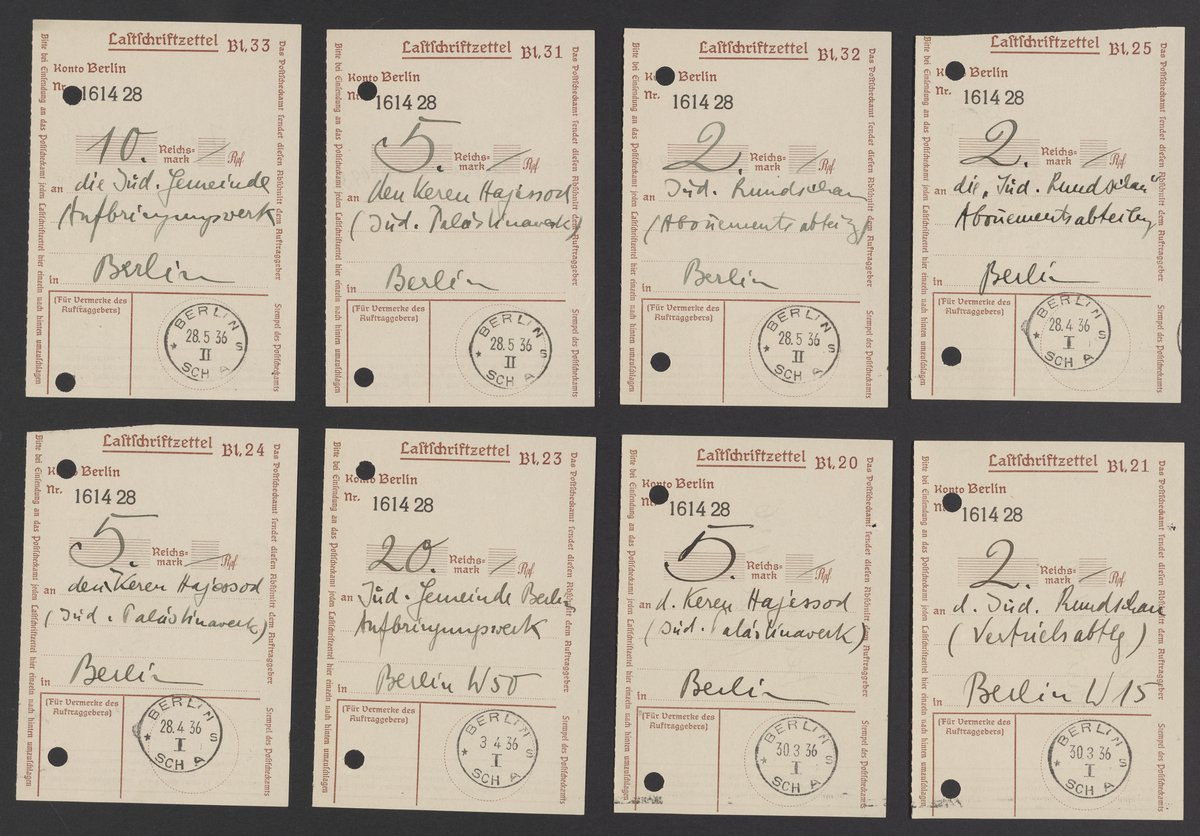 Lastschriftzettel Bl. 33
Konto Berlin
Nr. 1614 28
10. Reichs-mark / Rpf.
an die Jüd. Gemeinde
(Aufbringungswerk
in Berlin
(Für Vermerke des
Auftraggebers)
BERLIN S
28.5 36
II
* SCH A
Bitte bei Einsendung an das Postscheckamt jeden Lastschriftzettel hier einzeln nach hinten umzuschlagen
Das Postscheckamt sendet diesen Abschnitt dem Auftraggeber
Stempel des Postscheckamts
Lastschriftzettel Bl. 31
Konto Berlin
Nr. 1614 28
5. Reichs-mark / Rpf.
an den Keren Hajessod
(Jüd. Palästinawerk)
in Berlin
(Für Vermerke des
Auftraggebers)
BERLIN S
28.5 36
II
* SCH A
Bitte bei Einsendung an das Postscheckamt jeden Lastschriftzettel hier einzeln nach hinten umzuschlagen
Das Postscheckamt sendet diesen Abschnitt dem Auftraggeber
Stempel des Postscheckamts
Lastschriftzettel Bl. 32
Konto Berlin
Nr. 1614 28
2. Reichs-mark / Rpf.
an Jüd. Rundschau
(Abonnementsabteilg)
in Berlin
(Für Vermerke des
Auftraggebers)
BERLIN S
28.5 36
II
* SCH A
Bitte bei Einsendung an das Postscheckamt jeden Lastschriftzettel hier einzeln nach hinten umzuschlagen
Das Postscheckamt sendet diesen Abschnitt dem Auftraggeber
Stempel des Postscheckamts
Lastschriftzettel Bl. 25
Konto Berlin
Nr. 1614 28
2. Reichs-mark / Rpf.
an die „Jüd. Rundschau"
Abonnementsabteilg
in Berlin
(Für Vermerke des
Auftraggebers)
BERLIN S
28.4 36
I
* SCH A
Bitte bei Einsendung an das Postscheckamt jeden Lastschriftzettel hier einzeln nach hinten umzuschlagen
Das Postscheckamt sendet diesen Abschnitt dem Auftraggeber
Stempel des Postscheckamts
Lastschriftzettel Bl. 24
Konto Berlin
Nr. 1614 28
5. Reichs-mark / Rpf.
an den Keren Hajessod
(Jüd. Palästinawerk)
in Berlin
(Für Vermerke des
Auftraggebers)
BERLIN S
28.4 36
I
* SCH A
Bitte bei Einsendung an das Postscheckamt jeden Lastschriftzettel hier einzeln nach hinten umzuschlagen
Das Postscheckamt sendet diesen Abschnitt dem Auftraggeber
Stempel des Postscheckamts
Lastschriftzettel Bl. 23
Konto Berlin
Nr. 1614 28
20. Reichs-mark / Rpf.
an Jüd. Gemeinde Berlin
Aufbringungswerk
in Berlin W 50
(Für Vermerke des
Auftraggebers)
BERLIN S
3 4 36
I
* SCH A
Bitte bei Einsendung an das Postscheckamt jeden Lastschriftzettel hier einzeln nach hinten umzuschlagen
Das Postscheckamt sendet diesen Abschnitt dem Auftraggeber
Stempel des Postscheckamts
Lastschriftzettel Bl. 20
Konto Berlin
Nr. 1614 28
5. Reichs-mark / Rpf.
an d. Keren Hajessod
(Jüd. Palästinawerk)
in Berlin
(Für Vermerke des
Auftraggebers)
BERLIN S
30.3 36
I
* SCH A
Bitte bei Einsendung an das Postscheckamt jeden Lastschriftzettel hier einzeln nach hinten umzuschlagen
Das Postscheckamt sendet diesen Abschnitt dem Auftraggeber
Stempel des Postscheckamts
Lastschriftzettel Bl. 21
Konto Berlin
Nr. 1614 28
2. Reichs-mark / Rpf.
an d. Jüd. Rundschau
(Vertriebsabtlg)
in Berlin W 15
(Für Vermerke des
Auftraggebers)
BERLIN S
30.3 36
I
* SCH A
Bitte bei Einsendung an das Postscheckamt jeden Lastschriftzettel hier einzeln nach hinten umzuschlagen
Das Postscheckamt sendet diesen Abschnitt dem Auftraggeber
Stempel des Postscheckamts